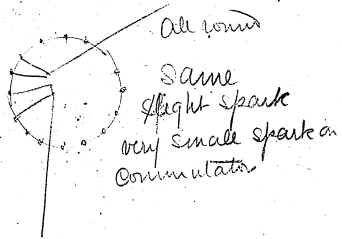 All round
Same
slight spark
very small spark on
Commutator